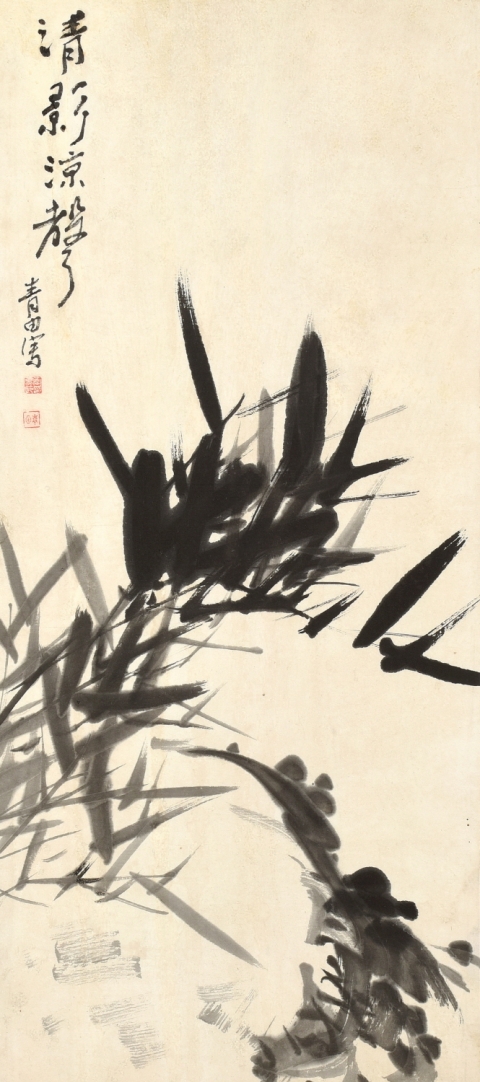 清影涼聲
青由寫